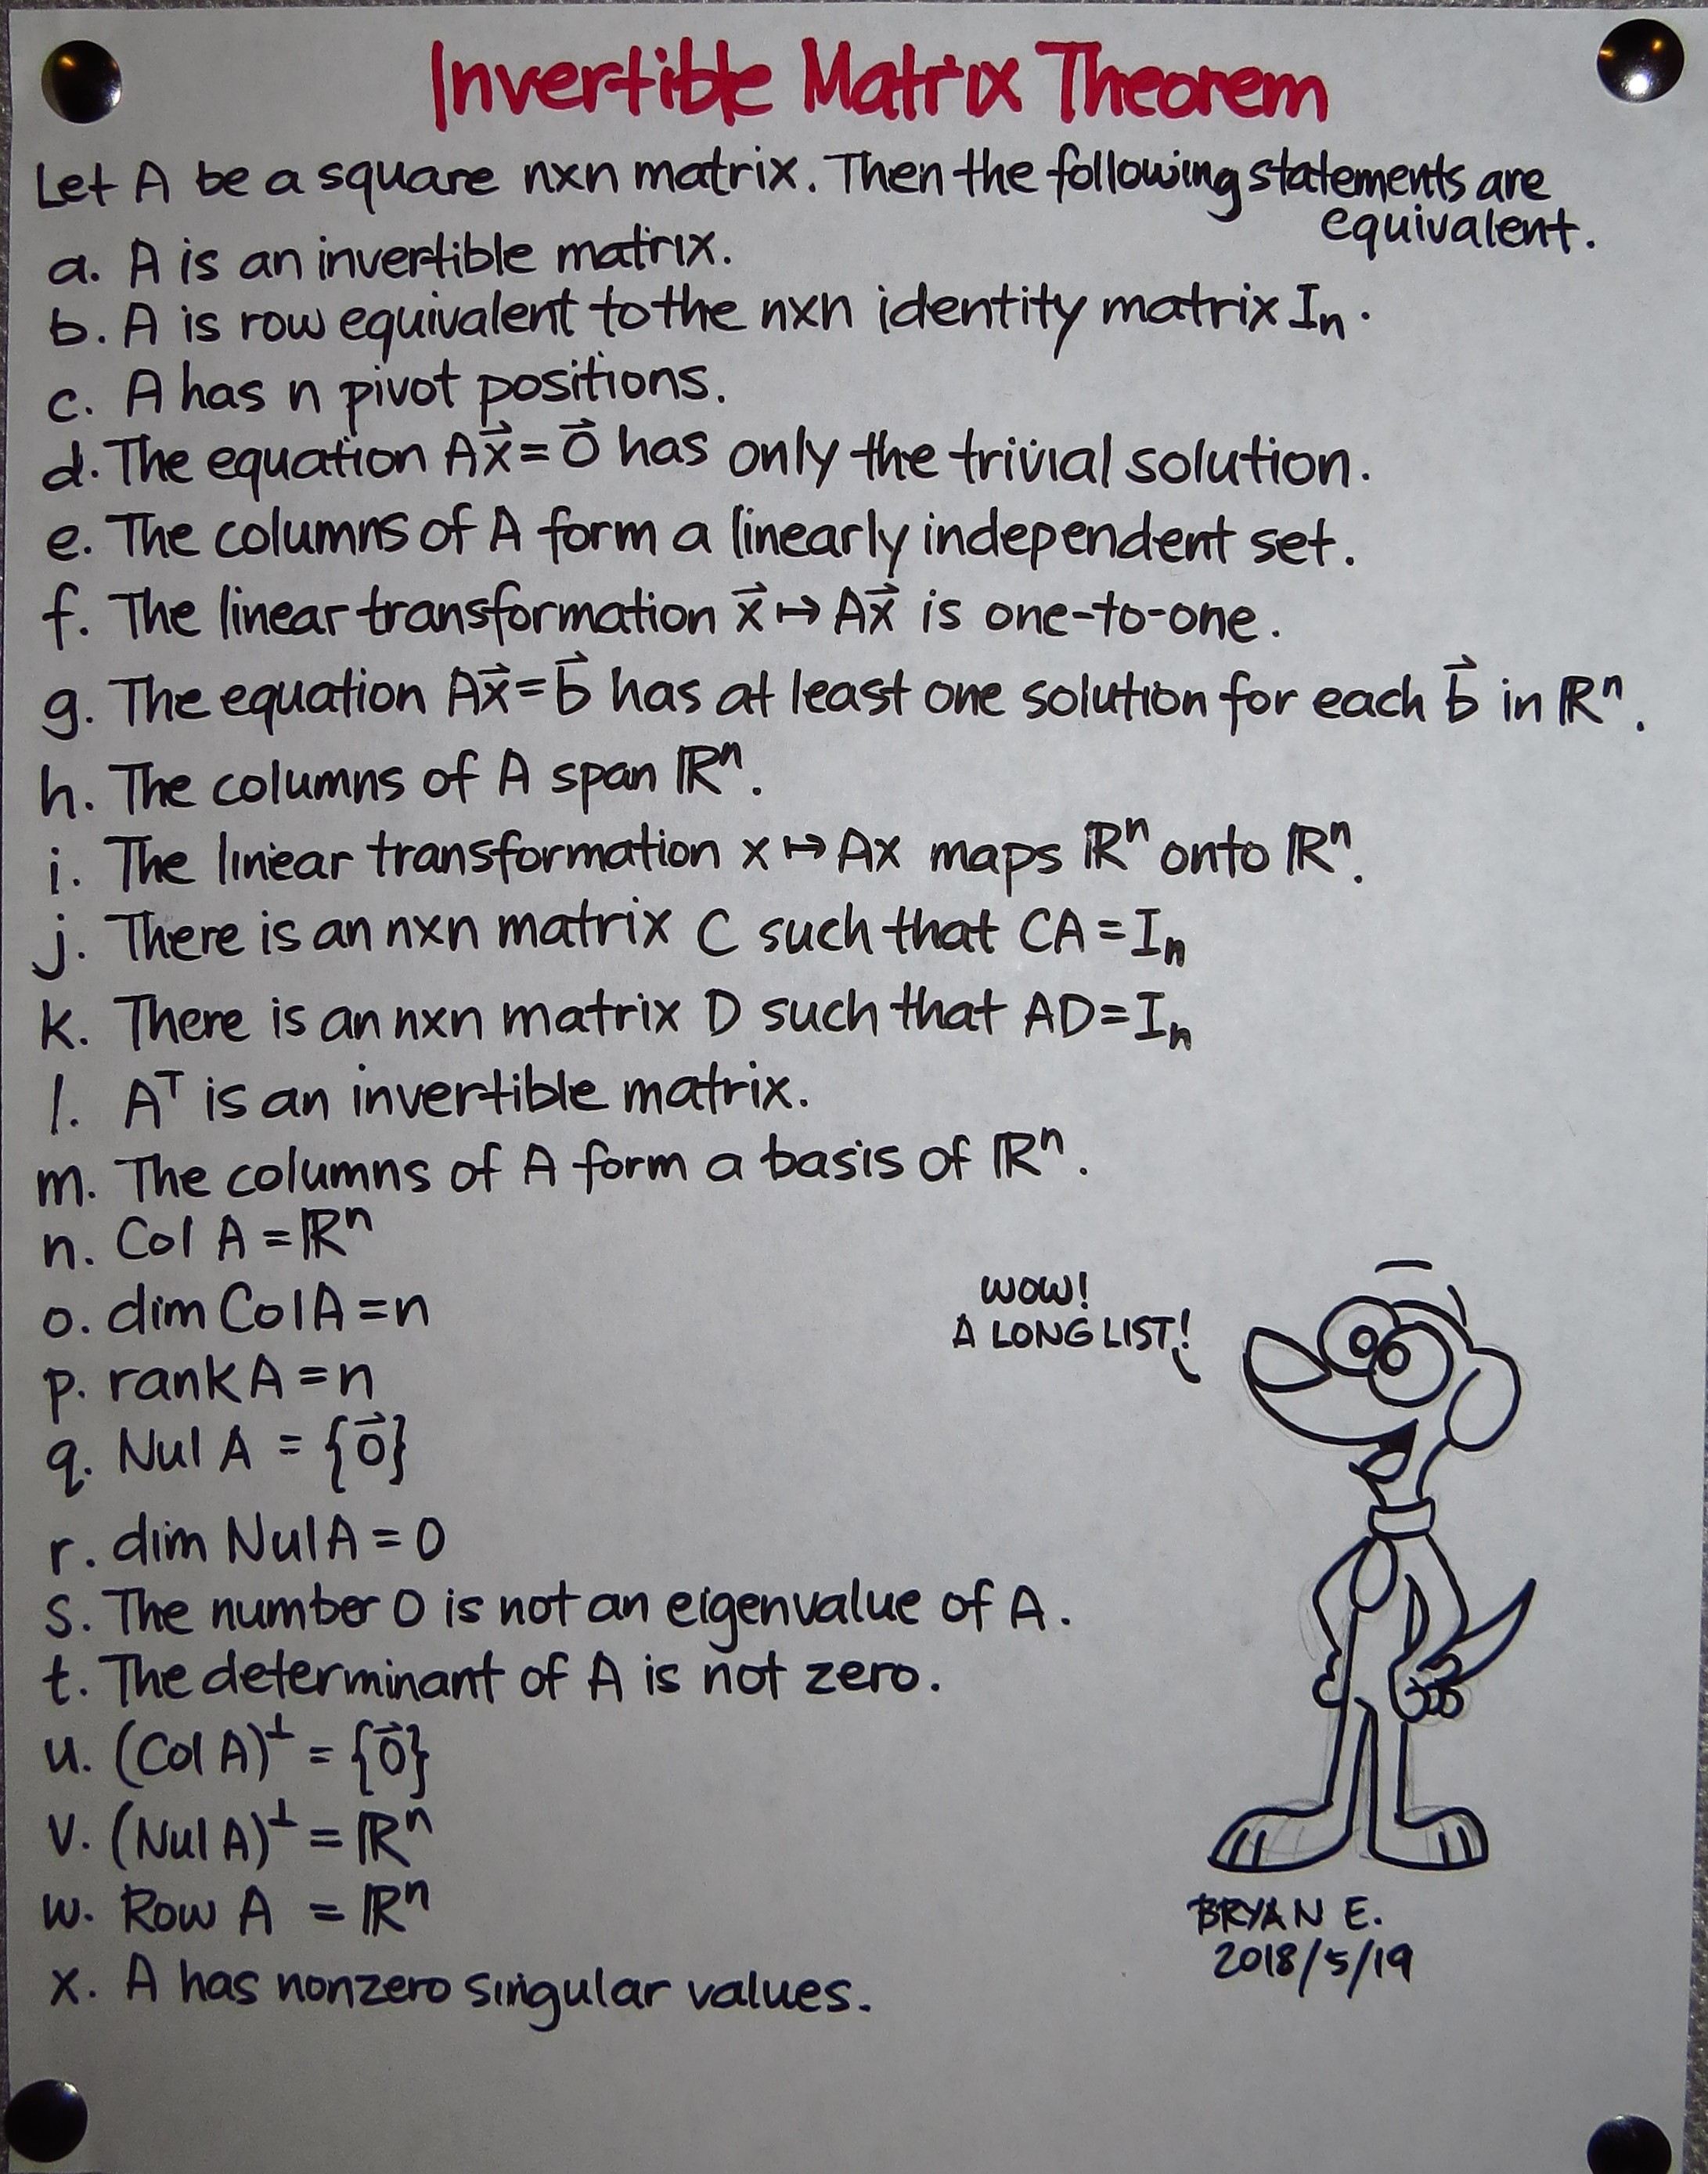 Invertible Matrix Theorem
Let A be a square nxn matrix. Then the following statements are
equivalent.
a. A is an invertible matrix.
b. A is row equivalent to the nxn identity matrix Iₙ.
c. A has n pivot positions.
d. The equation Ax⃗ = 0⃗ has only the trivial solution.
e. The columns of A form a linearly independent set.
f. The linear transformation x⃗ ↦ Ax⃗ is one-to-one.
g. The equation Ax⃗ = b⃗ has at least one solution for each b⃗ in ℝⁿ.
h. The columns of A span ℝⁿ.
i. The linear transformation x ↦ Ax maps ℝⁿ onto ℝⁿ.
j. There is an nxn matrix C such that CA = Iₙ
k. There is an nxn matrix D such that AD = Iₙ
l. Aᵀ is an invertible matrix.
m. The columns of A form a basis of ℝⁿ.
n. Col A = ℝⁿ
o. dim Col A = n
p. rank A = n
q. Nul A = {0⃗}
r. dim Nul A = 0
s. The number 0 is not an eigenvalue of A.
t. The determinant of A is not zero.
u. (Col A)⊥ = {0⃗}
v. (Nul A)⊥ = ℝⁿ
w. Row A = ℝⁿ
x. A has nonzero singular values.
WOW!
A LONG LIST!
BRYAN E.
2018/5/19